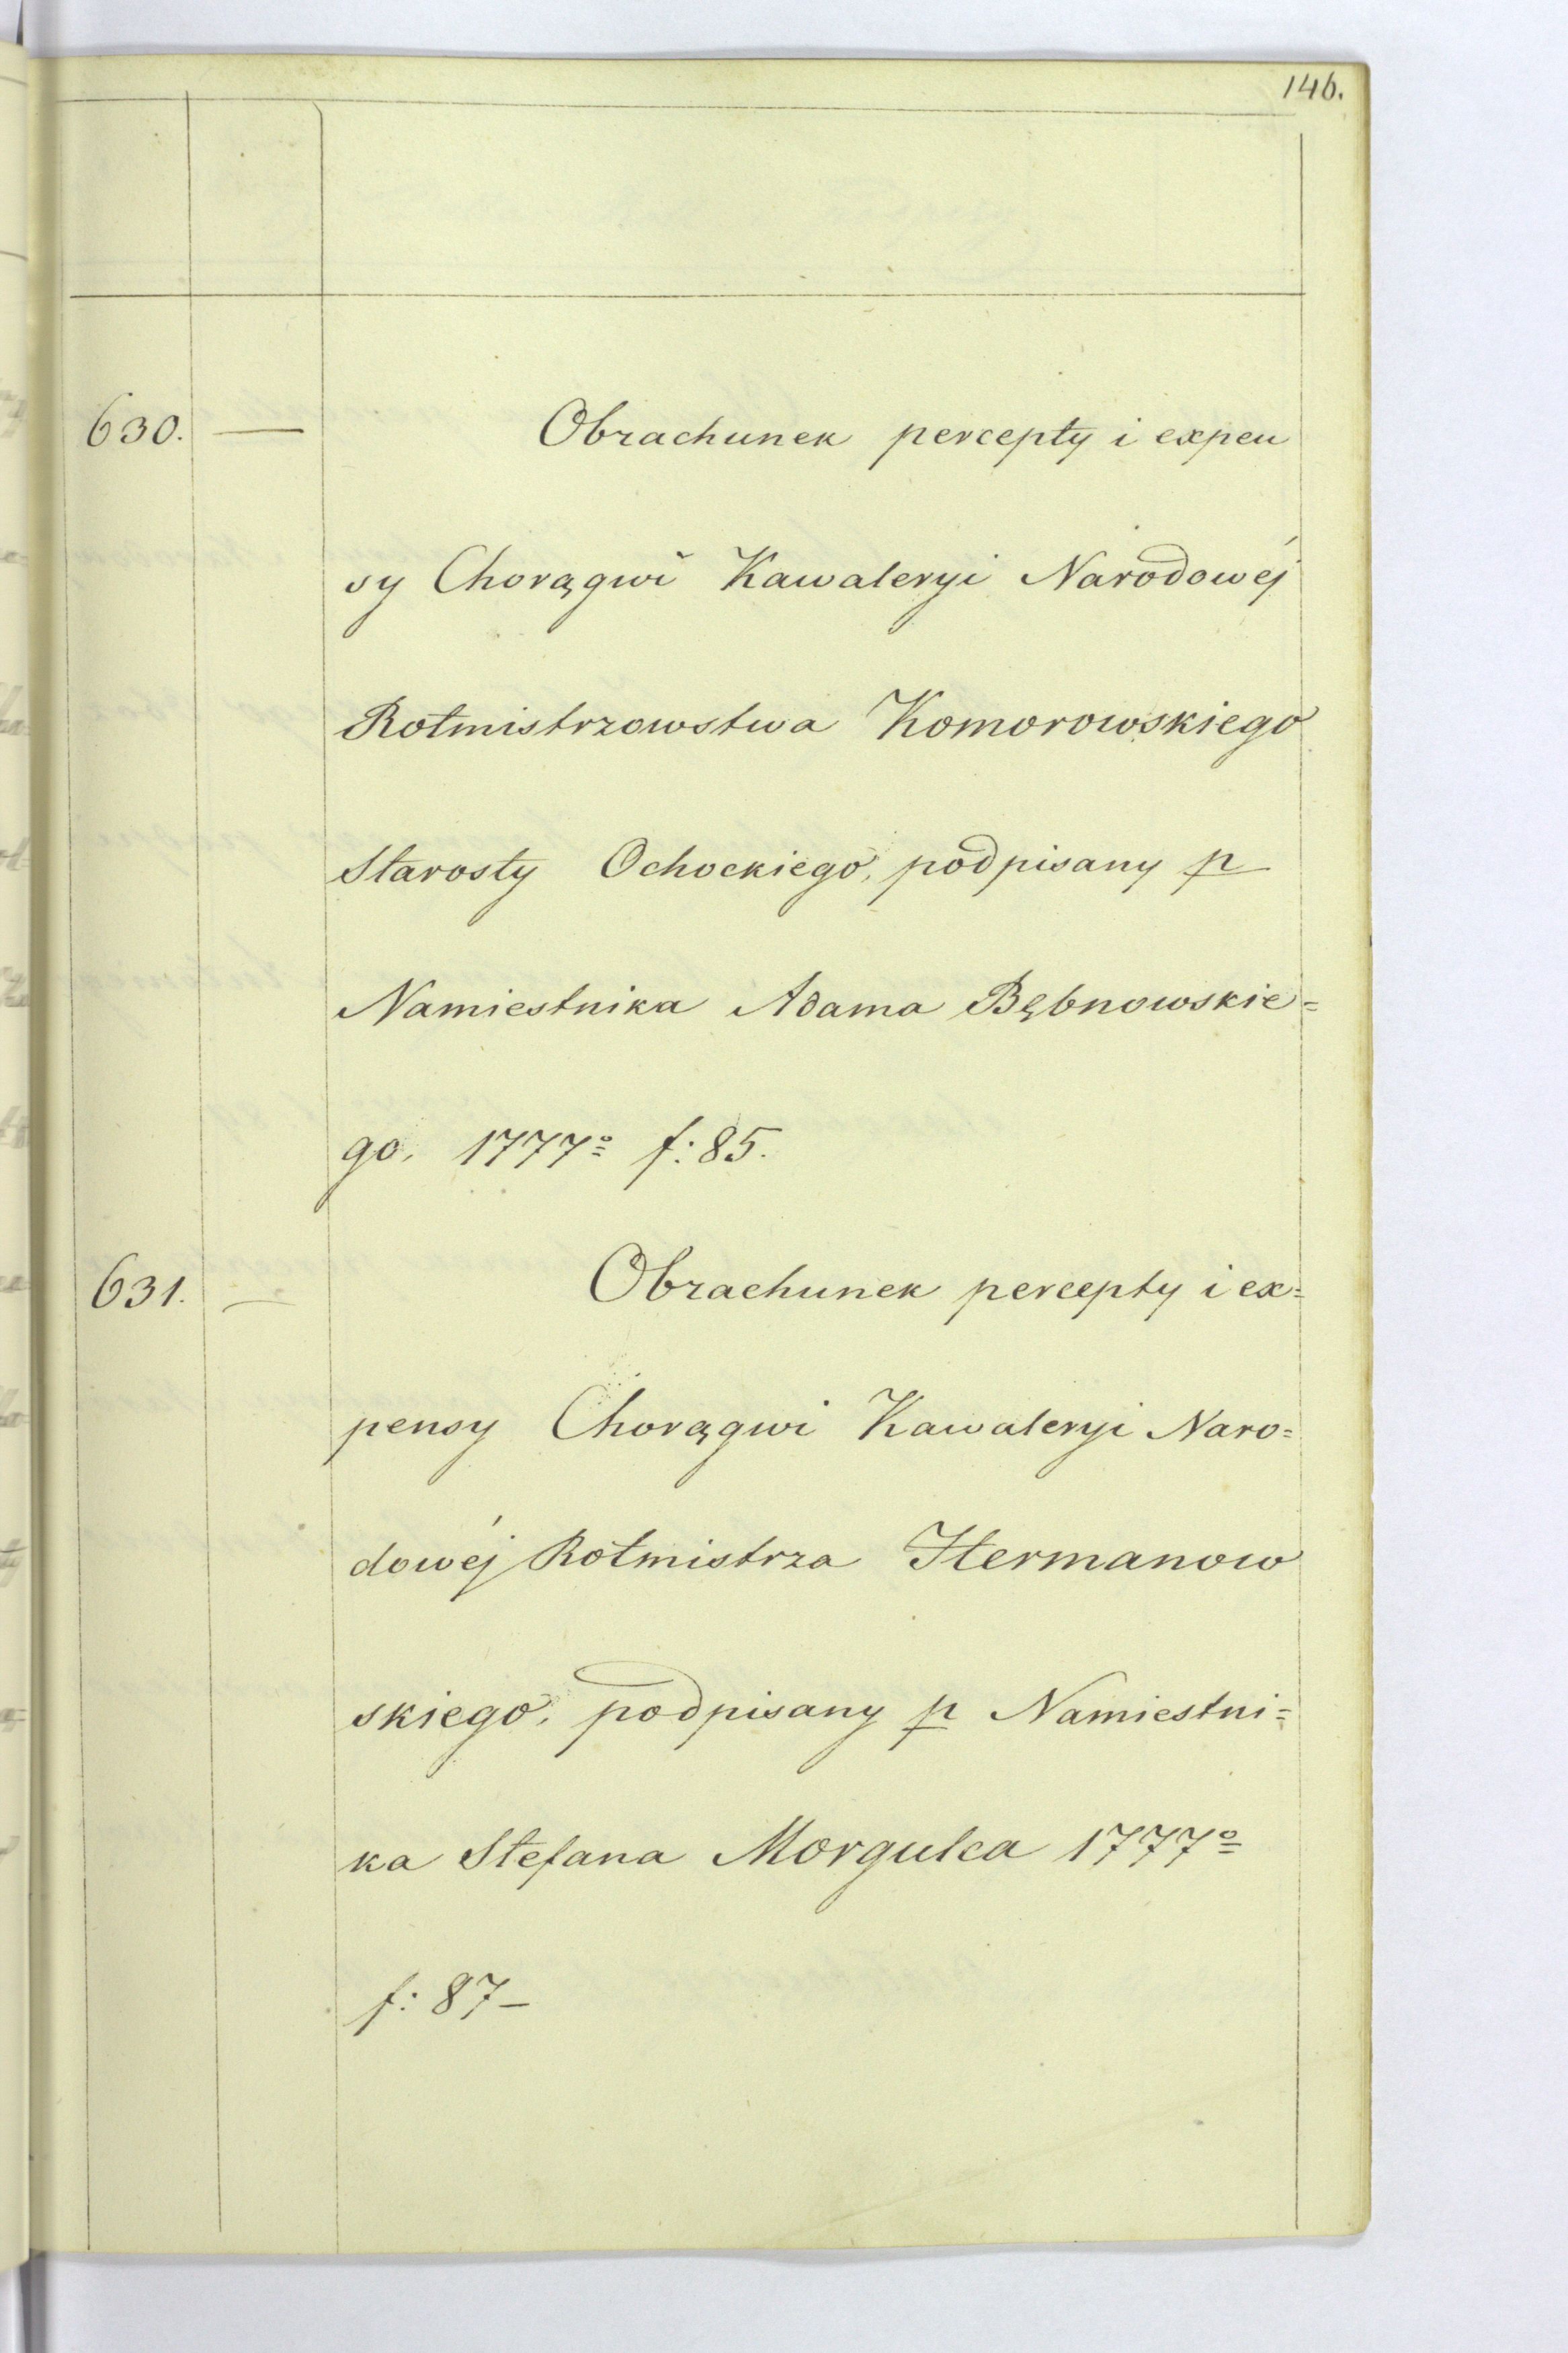 146.
630. — Obrachunek percepty i expen
sy Chorągwi Kawaleryi Narodowéj
Rotmistrzowstwa Komorowskiego
Starosty Ochockiego, podpisany p
Namiestnika Adama Bębnowskie=
go, 1777º f: 85.
631. — Obrachunek percepty i ex=
pensy Chorągwi Kawaleryi Naro=
dowéj Rotmistrza Hermanow
skiego, podpisany p Namiestni=
ka Stefana Morgulca 1777º
f: 87—